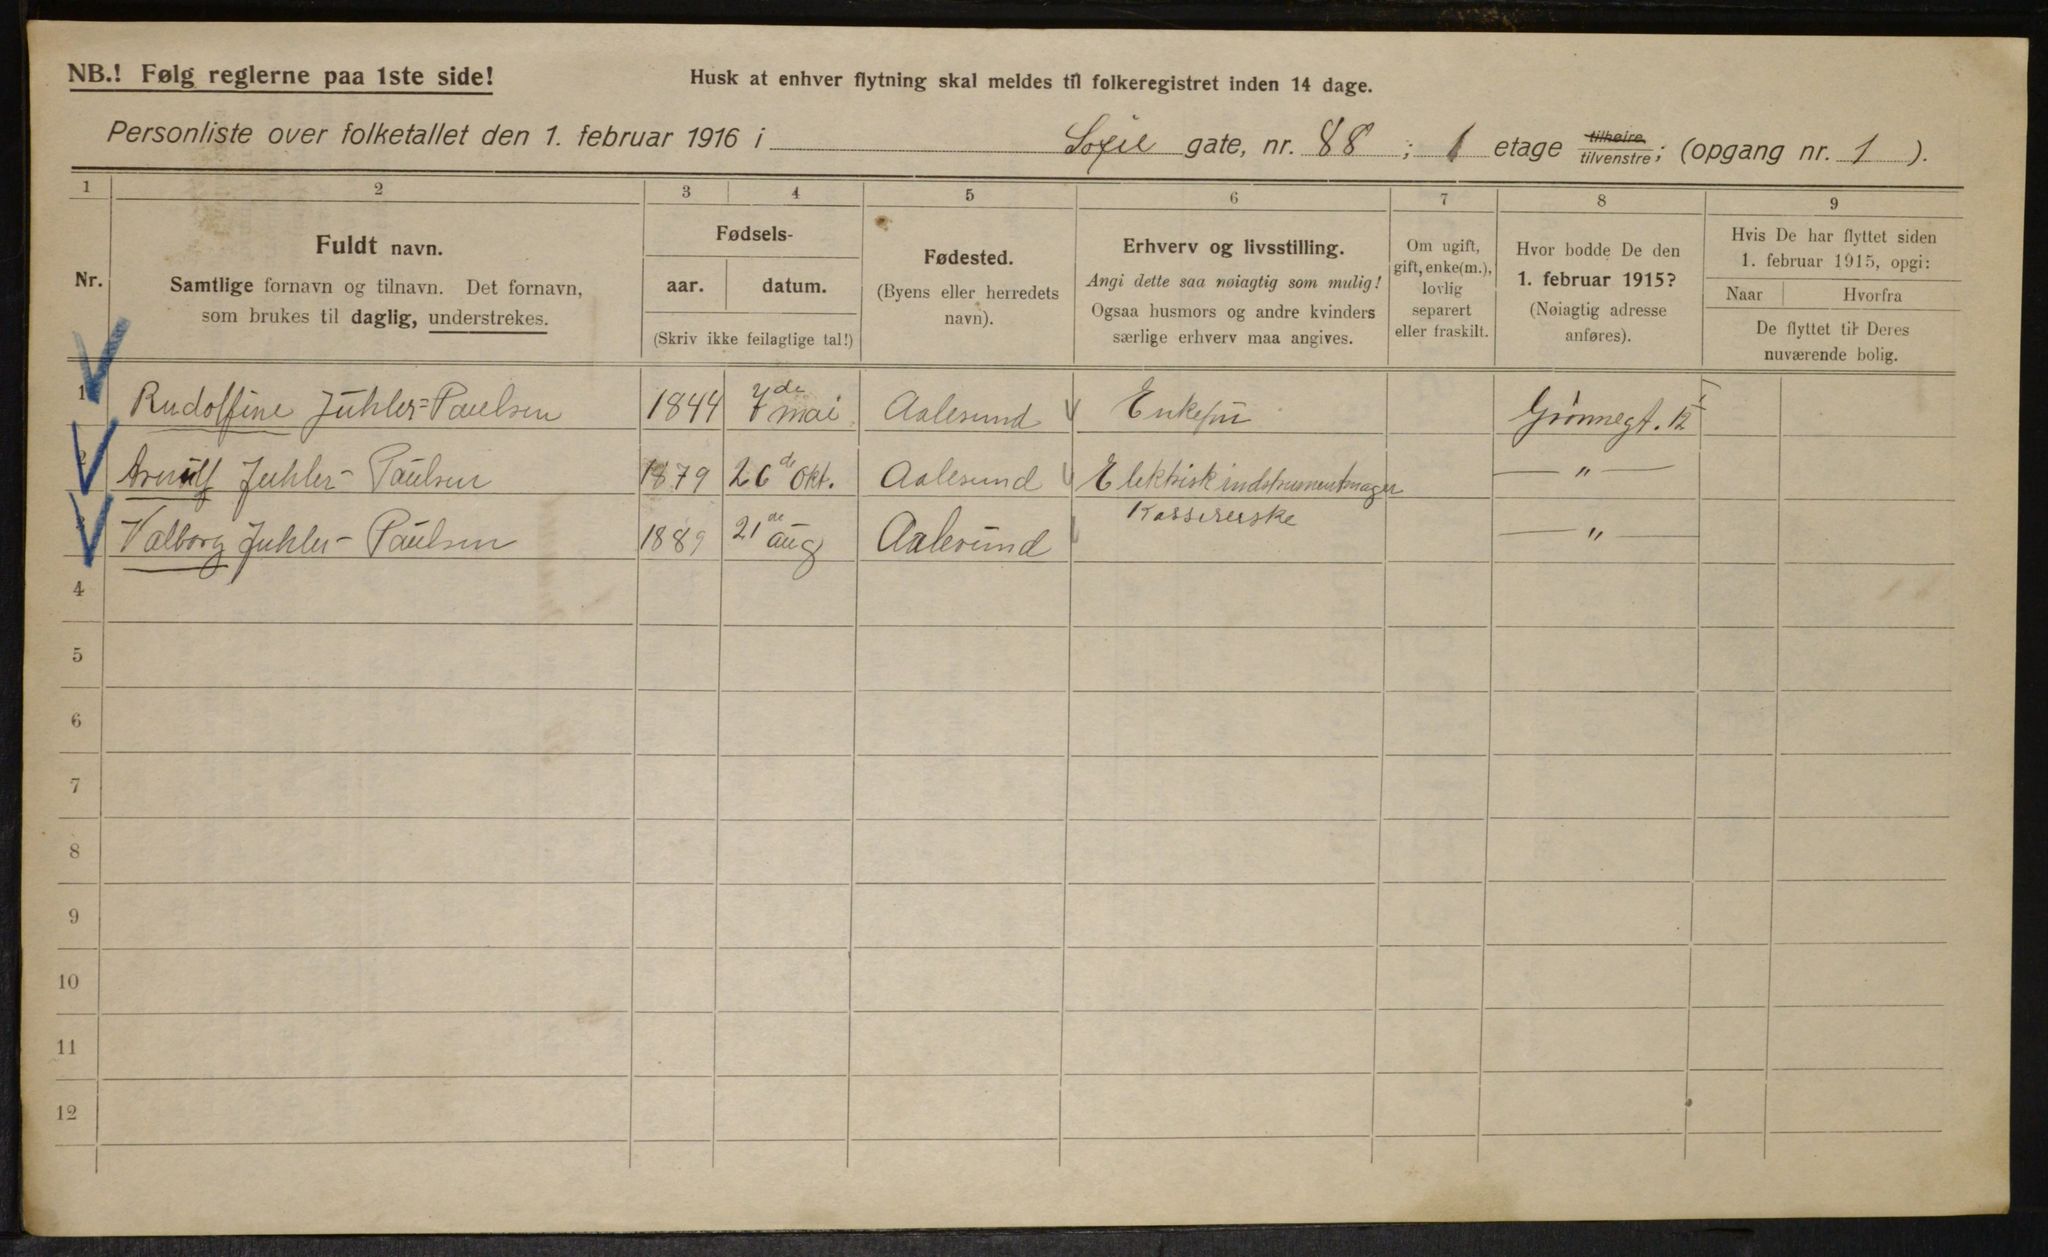 NB.! Følg reglerne paa 1ste side!
Husk at enhver flytning skal meldes til folkeregistret inden 14 dage.
Personliste over folketallet den 1. februar 1916 i Sofie gate, nr. 88 ; 1 etage tilhøire tilvenstre; (opgang nr. 1 ).
1 2 3 4 5 6 7 8 9
Nr.
Fuldt navn.
Samtlige fornavn og tilnavn. Det fornavn,
som brukes til daglig, understrekes.
Fødsels-
aar. datum.
(Skriv ikke feilagtige tal!)
Fødested.
(Byens eller herredets
navn).
Erhverv og livsstilling.
Angi dette saa nøiagtig som mulig!
Ogsaa husmors og andre kvinders
særlige erhverv maa angives.
Om ugift,
gift, enke(m.),
lovlig
separert
eller fraskilt.
Hvor bodde De den
1. februar 1915?
(Nøiagtig adresse
anføres).
Hvis De har flyttet siden
1. februar 1915, opgi:
Naar Hvorfra
De flyttet til Deres
nuværende bolig.
1 Rudolfine Juhler-Paulsen 1844 7de mai Aalesund Enkefru Grønnegt. 12 I
2 Arnulf Juhler-Paulsen 1879 26de Okt. Aalesund Elektrisk indstrumentmager — " —
3 Valborg Juhler-Paulsen 1889 21de aug Aalesund Kassererske — " —
4
5
6
7
8
9
10
11
12